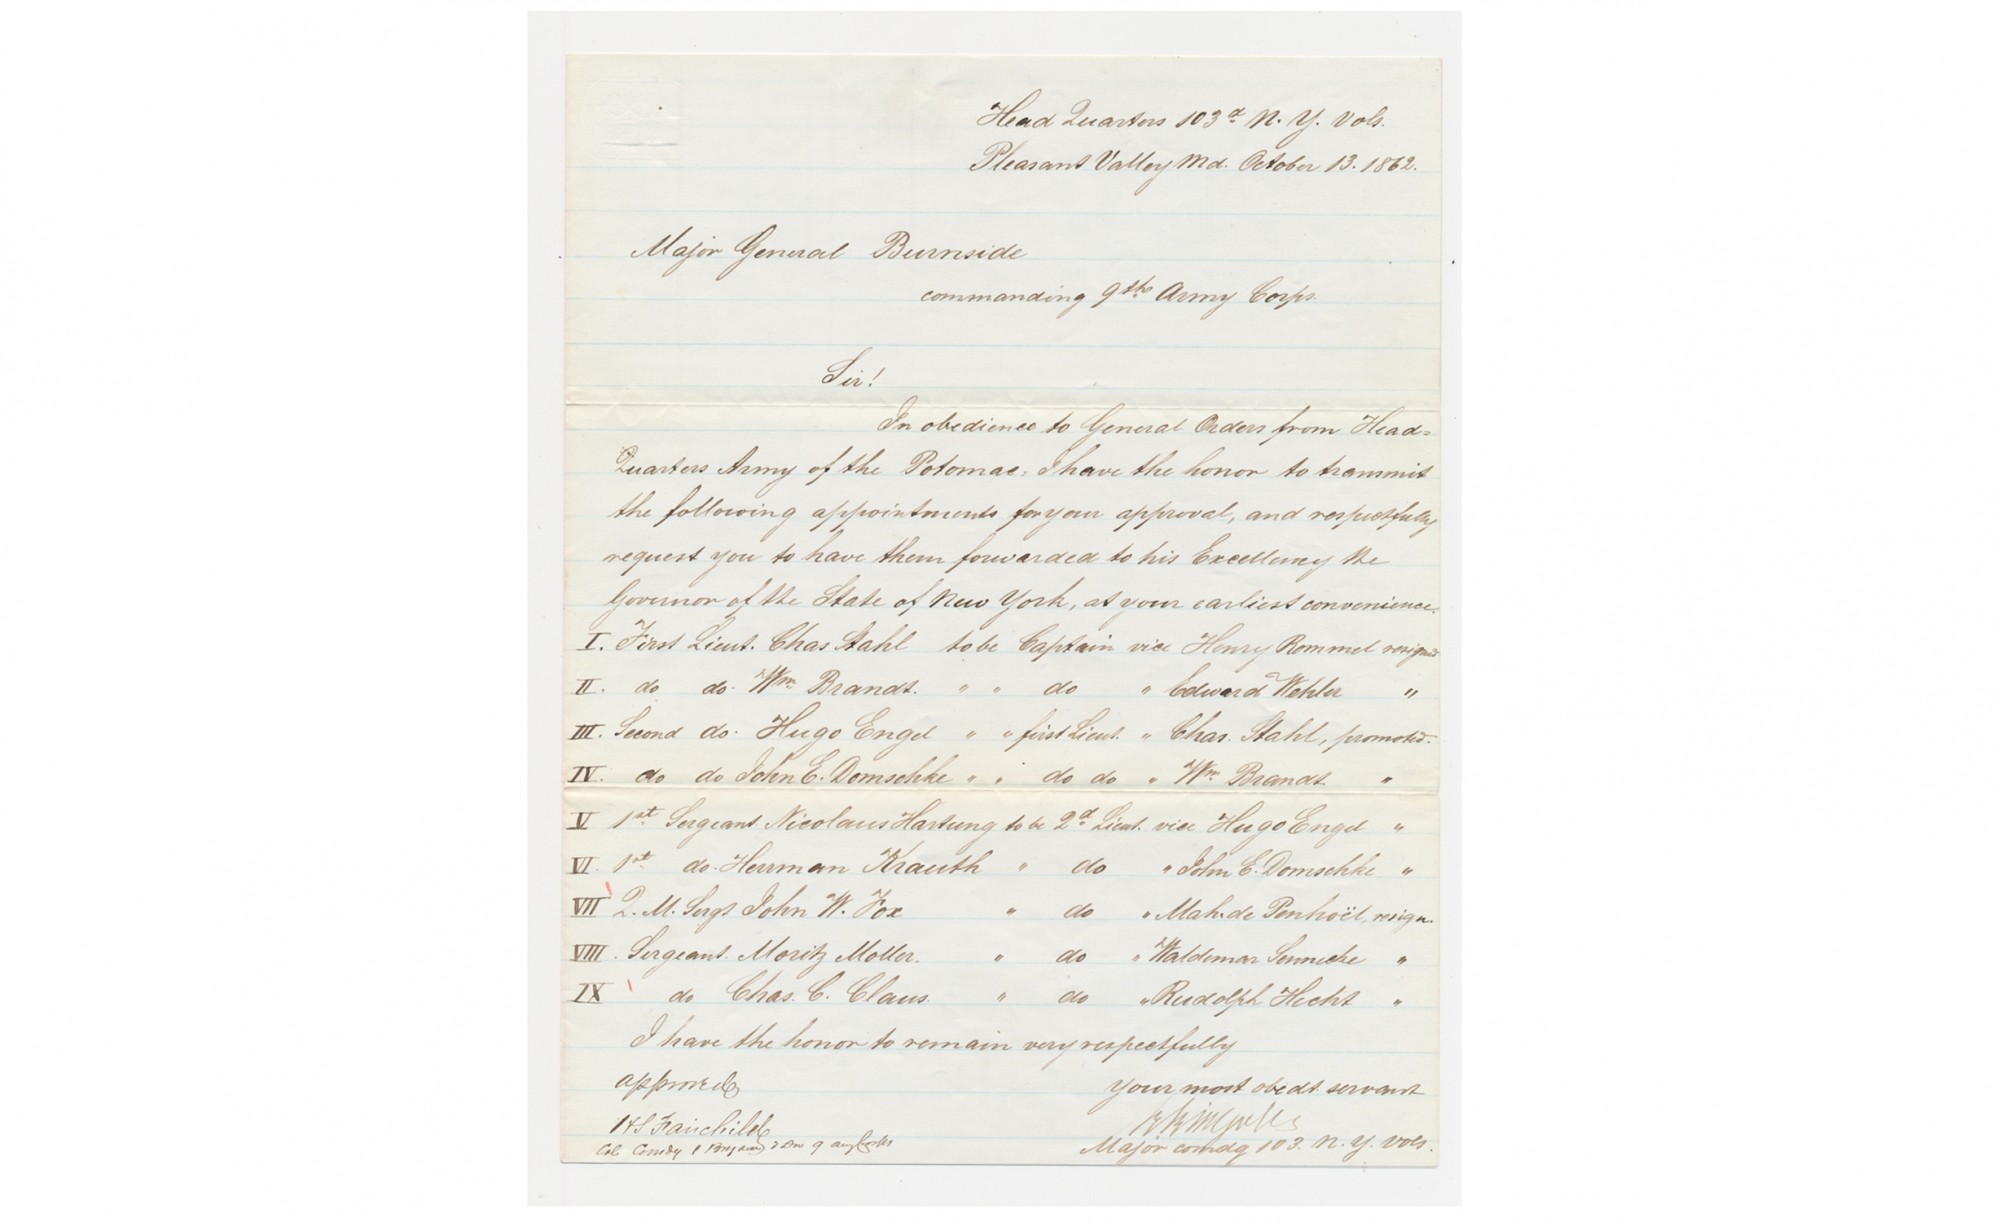 Head Quarters 103d N. Y. Vols.
Pleasant Valley Md. October 13. 1862.
Major General Burnside
commanding 9th Army Corps.
Sir!
In obedience to General Orders from Head=
Quarters Army of the Potomac, I have the honor to transmit
the following appointments for your approval, and respectfully
request you to have them forwarded to his Excellency the
Governor of the State of New York, at your earliest convenience.
I. First Lieut. Chas Stahl to be Captain vice Henry Rommel resigned
II. do do. Wm Brandt. " " do " Edward Wehler "
III. Second do. Hugo Engel " " first Lieut. " Chas. Stahl, promoted.
IV. do do John E. Domschke " " do do " Wm Brandt "
V 1st Sergeant Nicolaus Hartung to be 2d Lieut. vice Hugo Engel "
VI. 1st do. Herrman Krauth " do " John E. Domschke "
VII Q. M. Sergt John W. Fox " do " Mah. de Penhoët, resign.
VIII. Sergeant. Moritz Moller. " do " Waldemar Sennecke "
IX do Chas. C. Claus. " do " Rudolph Hecht "
I have the honor to remain very respectfully
approved
your most obedt. servant
H S Fairchild
Col Comdg 1 Brigade 2 Div 9
Major comdg 103. N. Y. Vols.